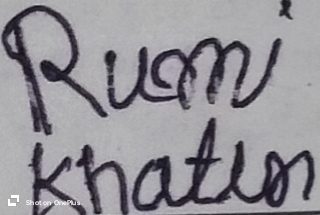 Rumi
Khatun
Shot on OnePlus